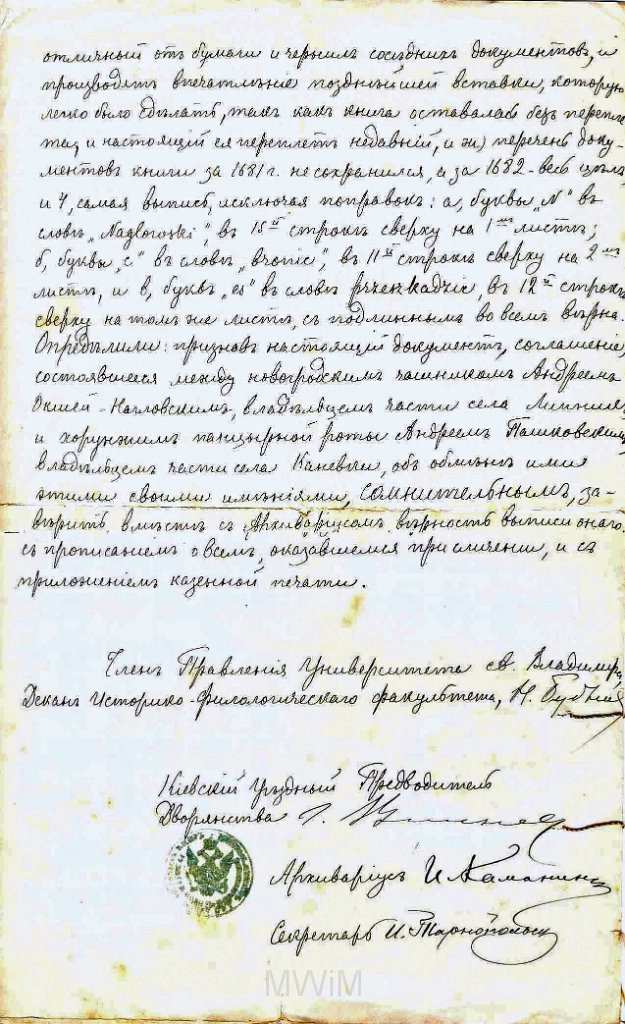 отличный отъ бумаги и чернилъ сосѣднихъ документовъ, и
производитъ впечатлѣніе позднѣйшей вставки, которую
легко было сдѣлать, такъ какъ книга оставалась безъ перепле
та, и настоящій ея переплетъ недавній, и ж) перечень доку-
ментовъ книги за 1681 г. не сохранился, а за 1682 - весь цѣлъ
и 4, самая выпись, исключая поправокъ: а, буквы "N" въ
словѣ "Nagłowski", въ 15й строкѣ сверху на 1мъ листѣ;
б, буквы "с" въ словѣ въ 11й строкѣ сверху на 2мъ
листѣ, и в, буквъ "es" въ словѣ въ 12й строкѣ
сверху на томъ же листѣ, съ подлиннымъ во всемъ вѣрна.
Опредѣлили: признавъ настоящій документъ, соглашеніе,
состоявшееся между новогродскимъ чашникомъ Андреемъ
Окшей-Нагловскимъ, владѣльцемъ части села
и хорунжимъ панцырной роты Андреемъ Пашковскимъ,
владѣльцемъ части села Каневки, объ обмѣнѣ ими
этими своими имѣніями, сомнительнымъ, за-
вѣрить вмѣстѣ съ Архиваріусомъ вѣрность выписи онаго
съ прописаніемъ о всемъ, оказавшемся при сличеніи, и съ
приложеніемъ казенной печати.
Членъ Правленія Университета св. Владиміра,
Деканъ Историко-Филологическаго факультета,
Кіевскій Уѣздный Предводитель
Дворянства
Архиваріусъ И. Каманинъ
Секретарь И. Тарнопольскій
MWiM